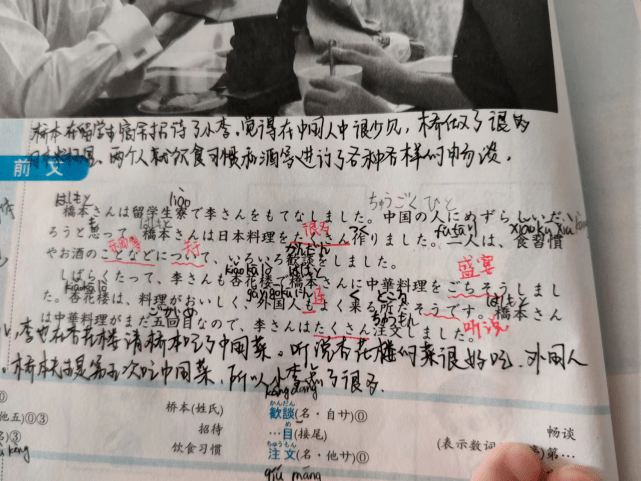 桥本在留学生宿舍招待了小李,觉得在中国人中很少见,桥做了很多
日本料理。两个人就饮食习惯和酒等进行了各种各样的畅谈。
前文
はしもと
りょう
ちゅうごく ひと
橋本さんは留学生寮で李さんをもてなしました。中国の人にめずらしいだ
ろうと思って、橋本さんは日本料理をたくさん作りました。二人は、食習慣
やお酒のことなどについて、いろいろ歓談をしました。
很多
つく
ふたり
かんだん
关于
盛宴
しばらくたって、李さんも杏花楼で橋本さんに中華料理をごちそうしまし
た。杏花楼は、料理がおいしく、外国人もよく来る所だそうです。橋本さん
は中華料理がまだ五回目なので、李さんはたくさん注文しました。
はしもと
がいこくじん
ところ
ちゅうもん
听说
李也在杏花楼请桥本吃了中国菜。听说杏花楼的菜很好吃,外国人
桥本是第五次吃中国菜,所以小李点了很多
桥本(姓氏)
招待
饮食习惯
かんだん
歓談(名・自サ)⓪
め
…目(接尾)
ちゅうもん
注文(名・他サ)⓪
畅谈
(表示数词
第…